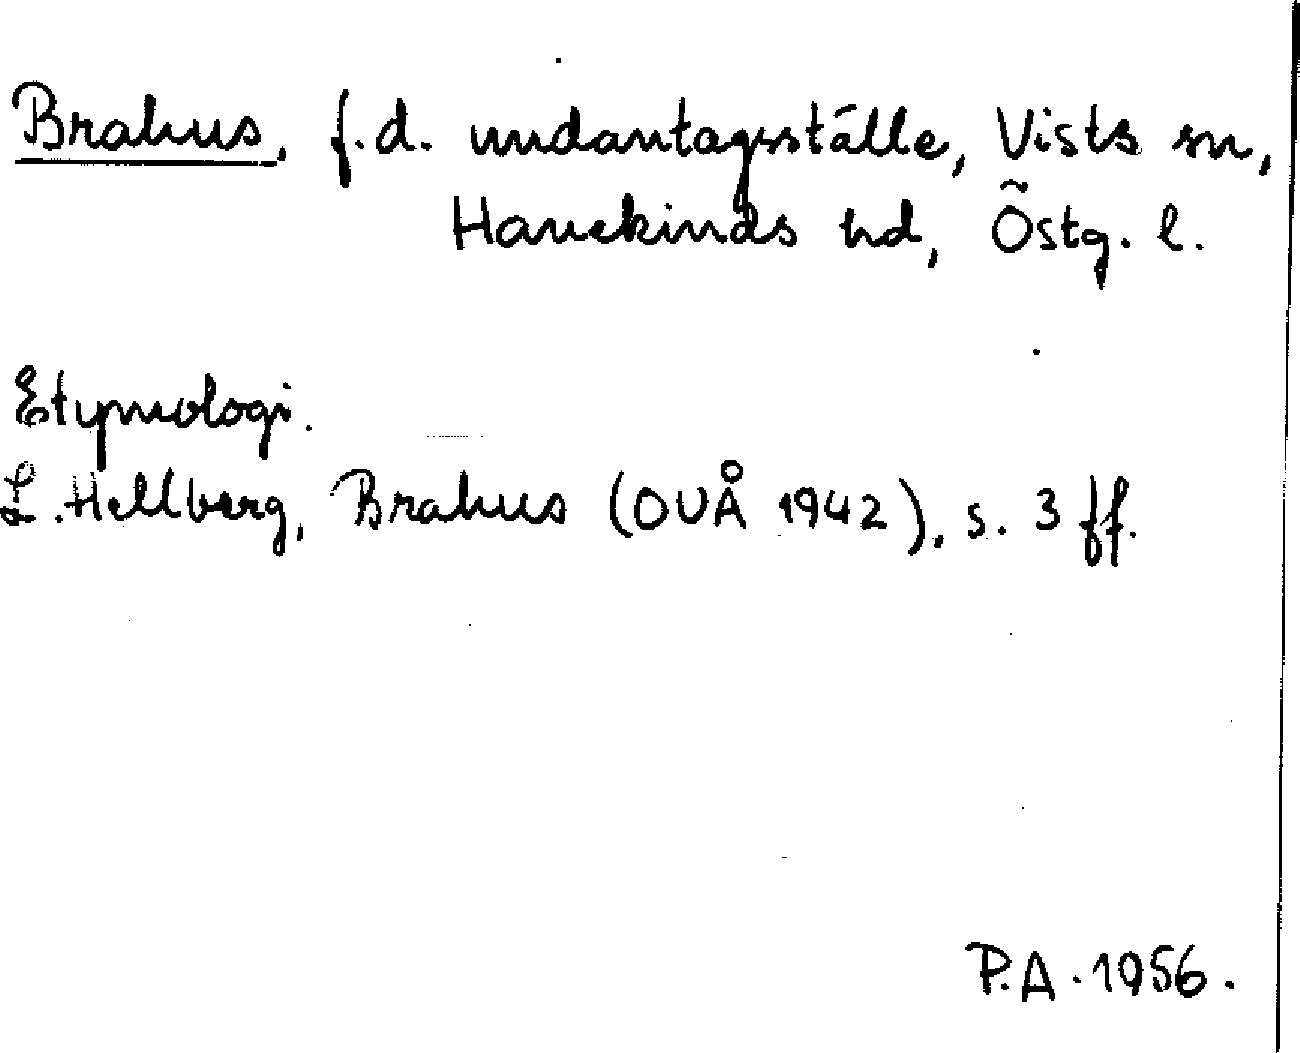 Brahus, f.d. undantagsställe, Vists sn,
Hanekinds hd, Östg. l.
Etymologi.
L. Hellberg, Brahus (OUÅ 1942), s. 3 ff.
P.A. 1956.